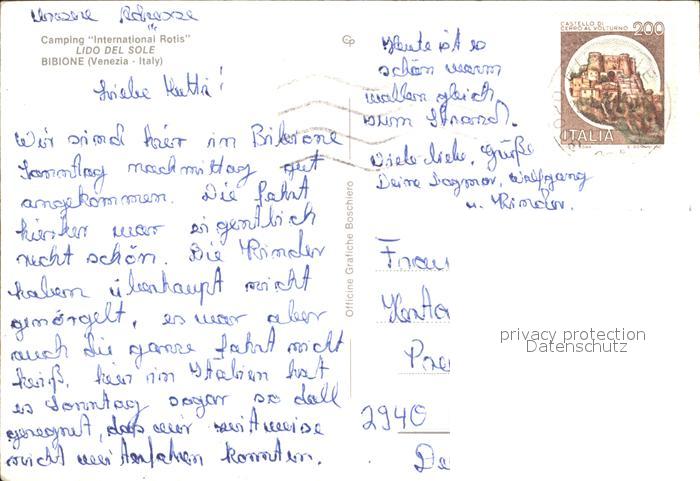 Unsere Adresse
Camping "International Rotis"
LIDO DEL SOLE
BIBIONE (Venezia - Italy)
Liebe Mutti!
Wir sind hier in Bibione
Sonntag nachmittag gut
angekommen. Die fahrt
hierher war eigentlich
recht schön. Die Kinder
haben überhaupt nicht
genörgelt, es war aber
auch die ganze fahrt nicht
heiß, hier in Italien hat
es Sonntag sogar so doll
geregnet, das wir zeitweise
nicht weiterfahren konnten.
Heute ist es
schön warm
wollen gleich
zum Strand.
Viele liebe Grüße
Deine Dagmar, Wolfgang
u. Kinder.
Officine Grafiche Boschiero
CASTELLO DI
CERRO AL VOLTURNO
200
ITALIA
Frau
Pre
2940
privacy protection
Datenschutz